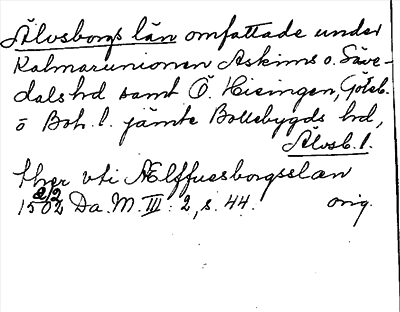 Älvsborgs län omfattade under
Kalmarunionen Askims o. Säve-
dals hd samt Ö. Hisingen, Göteb.
o Boh. l. jämte Bollebygds hd,
Älvsb. l.
ther vti Ælffuesborgsslæn
2/2
1502 Da. M. III: 2, s. 44. orig.